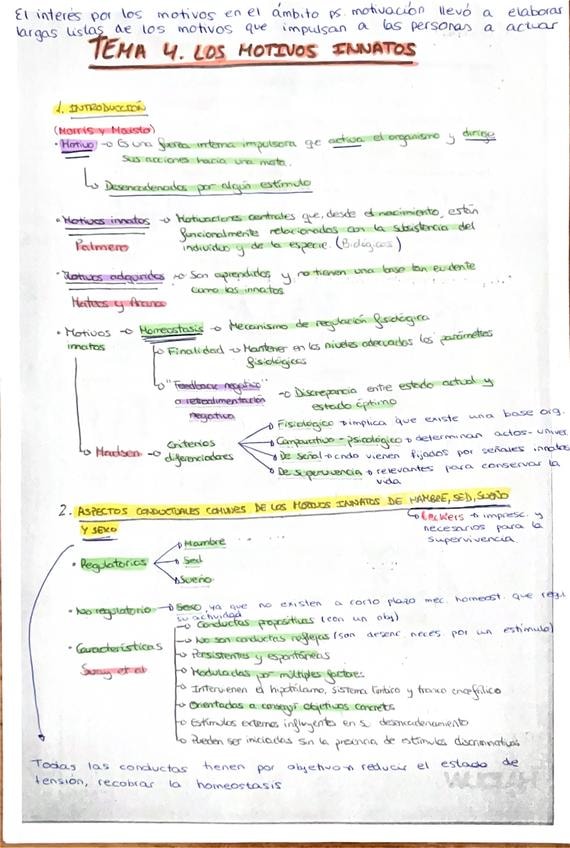 El interés por los motivos en el ámbito ps. motivación llevó a elaborar
largas listas de los motivos que impulsan a las personas a actuar
TEMA 4. LOS MOTIVOS INNATOS
1. INTRODUCCIÓN
(Morris y Maisto)
· Motivo → Es una fuerza interna impulsora qe activa el organismo y dirige
sus acciones hacia una meta.
↳ Desencadenados por algún estímulo
· Motivos innatos → Motivaciones centrales que, desde el nacimiento, están
Palmero funcionalmente relacionadas con la subsistencia del
individuo y de la especie. (Biológicas)
· Motivos adquiridos → Son aprendidos y no tienen una base tan evidente
Mateos y Arana como los innatos
· Motivos → Homeostasis → Mecanismo de regulación fisiológica
innatos → Finalidad → Mantener en los niveles adecuados los parámetros
fisiológicos
→ "Feedback negativo" → Discrepancia entre estado actual y
o retroalimentación estado óptimo
negativa
→ Fisiológico → implica que existe una base org.
→ Madsen → Criterios → Comparativo - psicológico → determinan actos-univer.
diferenciadores → De señal → cndo vienen fijados por señales innatas
→ De supervivencia → relevantes para conservar la
vida
2. ASPECTOS CONDUCTUALES COMUNES DE LOS MOTIVOS INNATOS DE HAMBRE, SED, SUEÑO
Y SEXO → impresc. y
necesarios para la
supervivencia.
→ Hambre
· Regulatorios → Sed
→ Sueño
· No regulatorio → Sexo, ya que no existen a corto plazo mec. homeost. que regul
su actividad
→ Conductas propositivas (con un obj)
→ No son conductas reflejas (son desenc neces. por un estímulo)
· Características → Persistentes y espontáneas
→ Moduladas por múltiples factores
→ Intervienen el hipotálamo, sistema límbico y tronco encefálico
→ Orientadas a conseguir objetivos concretos
→ Estímulos externos influyentes en su desencadenamiento
→ Pueden ser iniciadas sin la presencia de estímulos discriminativos
Todas las conductas tienen por objetivo → reducir el estado de
tensión, recobrar la homeostasis